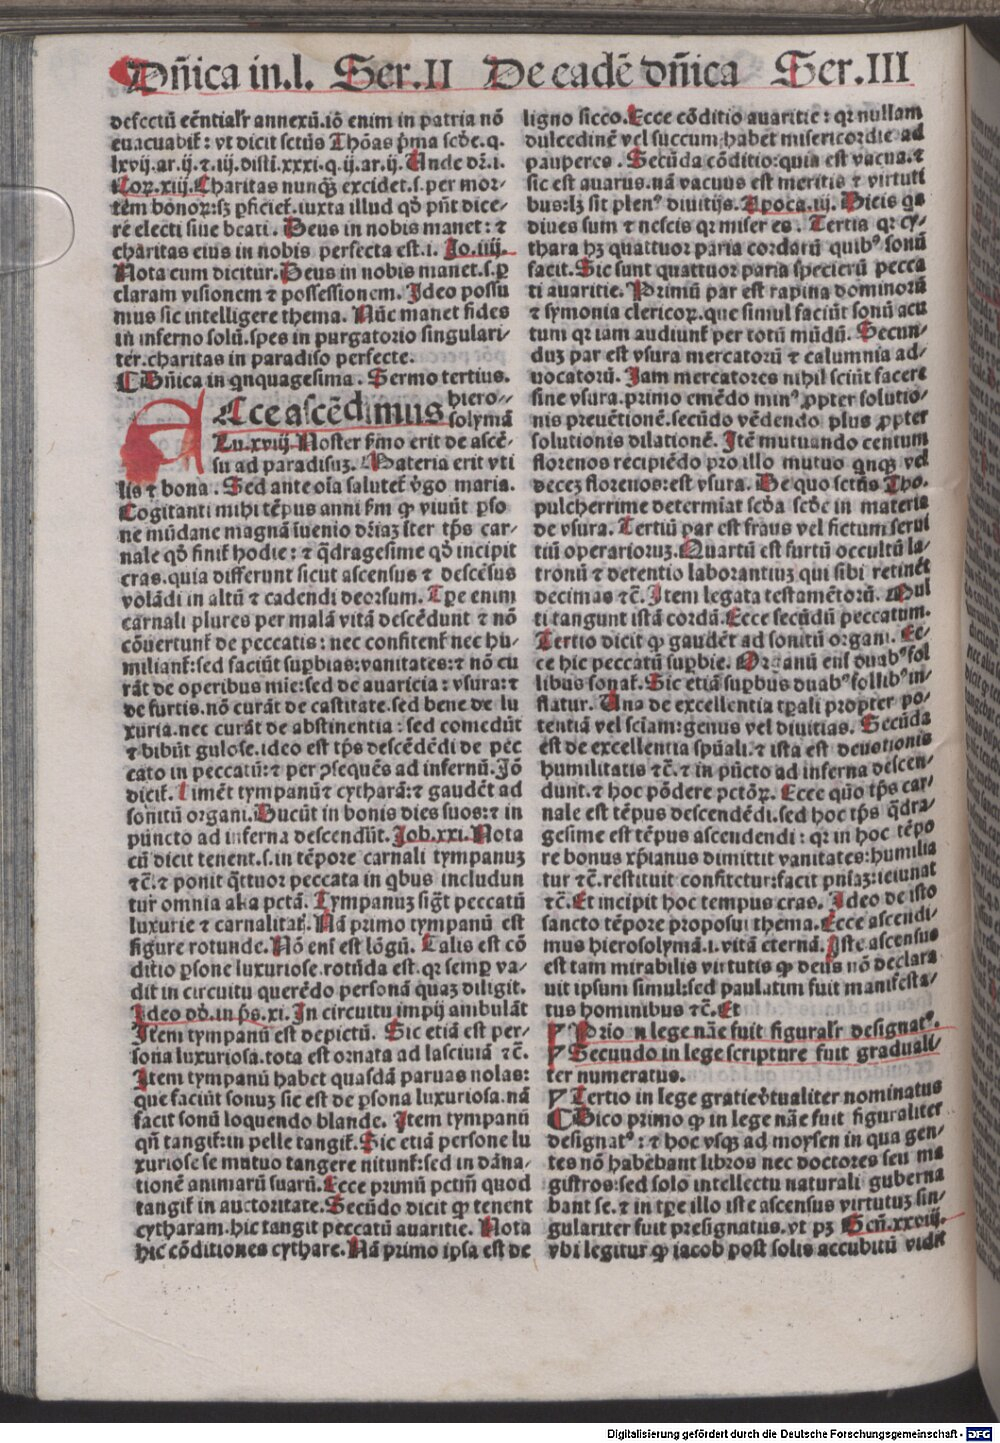 Dñica in.l. Ser.II De eadē dñica Ser.III
defectū eēntialr̄ annexū.iō enim in patria nō
euacuabit̄: vt dicit sctūs Thōas p̄ma scđe.q.
lxvij.ar.ij.⁊.iij.disti.xxxi.q.ij.ar.ij. Unde dr̄.i.
Coꝝ.xiij. Charitas nunqꝫ excidet.s.per mor-
tem bonoꝝ:sꝫ pficiet̄.iuxta illud qđ pn̄t dice-
re electi siue beati. Deus in nobis manet: ⁊
charitas eius in nobis perfecta est.i. Jo.iiij.
Nota cum dicitur. Deus in nobis manet.s.ꝑ
claram visionem ⁊ possessionem. Ideo possu
mus sic intelligere thema. Nūc manet fides
in inferno solū.spes in purgatorio singulari-
ter.charitas in paradiso perfecte.
Dñica in qnquagesima. Sermo tertius.
Ecce ascēdimus hiero-
solymā
Lu.xviij. Noster s̄mo erit de ascē-
su ad paradisuꝫ. Materia erit vti
lis ⁊ bona. Sed ante oīa salutet̄ v̄go maria.
Cogitanti mihi tēpus anni s̄m ꝙ viuūt pso
ne mūdane magnā īuenio dr̄iaꝫ īter tp̄s car-
nale qđ finit̄ hodie: ⁊ q̄dragesime qđ incipit
cras.quia differunt sicut ascensus ⁊ descēsus
volādi in altū ⁊ cadendi deorsum. Tp̄e enim
carnali plures per malā vitā descēdunt ⁊ nō
cōuertunt̄ de peccatis: nec confitent̄ nec hu-
miliant̄:sed faciūt suꝑbias:vanitates:⁊ nō cu
rāt de operibus mie:sed de auaricia: vsura:⁊
de furtis.nō curāt de castitate.sed bene de lu
xuria.nec curāt de abstinentia: sed comedūt
⁊ bibūt gulose.ideo est tp̄s descēdēdi de pec
cato in peccatū:⁊ per ↄsequēs ad infernū.Jō
dicit̄. Timēt tympanū ⁊ cytharā:⁊ gaudēt ad
sonitū organi. Ducūt in bonis dies suos:⁊ in
pūncto ad inferna descendūt. Job.xxi. Nota
cū dicit tenent.s.in tēpore carnali tympanuꝫ
⁊c̄.⁊ ponit q̄ttuor peccata in qbus includun
tur omnia alia pctā. Tympanuꝫ sigt̄ peccatū
luxurie ⁊ carnalitat̄. Nā primo tympanū est
figure rotunde. Nō eni̅ est lōgū. Talis est cō
ditio ꝑsone luxuriose.rotūda est.qꝛ semꝑ va-
dit in circuitu querēdo personā quaꝫ diligit.
Ideo dđ.in p̄s.xi. In circuitu impij ambulāt
Item tympanū est depictū. Sic etiā est per-
sona luxuriosa.tota est ornata ad lasciuiā ⁊c̄.
Item tympanū habet quasdā paruas nolas:
que faciūt sonuꝫ sic est de ꝑsona luxuriosa.nā
facit sonū loquendo blande. Item tympanū
qn̄ tangit̄:in pelle tangit̄. Sic etiā persone lu
xuriose se mutuo tangere nitunt̄:sed in dāna-
tionē animarū suarū. Ecce primū pctm̄ quod
tangit̄ in auctoritate. Secūdo dicit ꝙ tenent
cytharam.hic tangit peccatū auaritie. Nota
hic cōditiones cythare. Nā primo ipsa est de
ligno sicco. Ecce cōditio auaritie: qꝛ nullam
dulcedinē vel succum habet misericordie ad
pauperes. Secūda cōditio:quia est vacua.⁊
sic est auarus.nā vacuus est meritis ⁊ virtuti
bus:lꝫ sit plenꝰ diuitijs. Apoca.iij. Dicis qꝛ
diues sum ⁊ nescis qꝛ miser es. Tertia qꝛ cy-
thara hꝫ quattuor paria cordarū quibꝰ sonū
facit. Sic sunt quattuor paria specierū pecca
ti auaritie. Primū par est rapina dominorū
⁊ symonia clericoꝝ.que simul faciūt sonū acu
tum qꝛ iam audiunt̄ per totū mūdū. Secun-
duꝫ par est vsura mercatorū ⁊ calumnia ad-
uocatorū. Jam mercatores nihil sciūt facere
sine vsura.primo emēdo minꝰ ꝓpter solutio-
nis preuētionē.secūdo vēdendo plus ꝓpter
solutionis dilationē. Itē mutuando centum
florenos recipiēdo pro illo mutuo qnqꝫ vel
deceꝫ florenos:est vsura. De quo sctūs Tho.
pulcherrime determiat scđa scđe in materia
de vsura. Tertiū par est fraus vel fictum serui
tiū operarioruꝫ. Quartū est furtū occultū la-
tronū ⁊ detentio laborantiuꝫ qui sibi retinēt
decimas ⁊c̄. Item legata testamētorū. Mul
ti tangunt istā cordā. Ecce secūdū peccatum.
Tertio dicit ꝙ gaudēt ad sonitū organi. Ec-
ce hic peccatū suꝑbie. Organū eni̅ duabꝰ fol
libus sonat̄. Sic etiā suꝑbus duabꝰ follibꝰ in-
flatur. Una de excellentia tp̄ali propter po-
tentiā vel sciam:genus vel diuitias. Secūda
est de excellentia spūali.⁊ ista est deuotionis
humilitatis ⁊c̄.⁊ in pūcto ad inferna descen-
dunt.⁊ hoc pōdere pctōꝝ. Ecce quō tp̄s car-
nale est tēpus descendēdi.sed hoc tp̄s q̄dra-
gesime est tēpus ascendendi: qꝛ in hoc tēpo
re bonus xp̄ianus dimittit vanitates:humilia
tur ⁊c̄.restituit confitetur:facit pn̄iaꝫ:ieiunat
⁊c̄. Et incipit hoc tempus cras. Ideo de isto
sancto tēpore proposui thema. Ecce ascendi-
mus hierosolymā.i.vitā eternā. Iste ascensus
est tam mirabilis virtutis ꝙ deus nō declara
uit ipsum simul:sed paulatim fuit manifesta-
tus hominibus ⁊c̄. Et
Prio n lege nāe fuit figuralr̄ designatꝰ.
Secundo in lege scripture fuit graduali-
ter numeratus.
Tertio in lege gratie v̄tualiter nominatus
Dico primo ꝙ in lege nāe fuit figuraliter
designatꝰ: ⁊ hoc vsqꝫ ad moysen in qua gen-
tes nō habebant libros nec doctores seu ma
gistros:sed solo intellectu naturali guberna
bant se.⁊ in tp̄e illo iste ascensus virtutuꝫ sin-
gulariter fuit presignatus.vt pꝫ Gen̄.xxviij.
vbi legitur ꝙ iacob post solis accubitū vidit
Digitalisierung gefördert durch die Deutsche Forschungsgemeinschaft - DFG